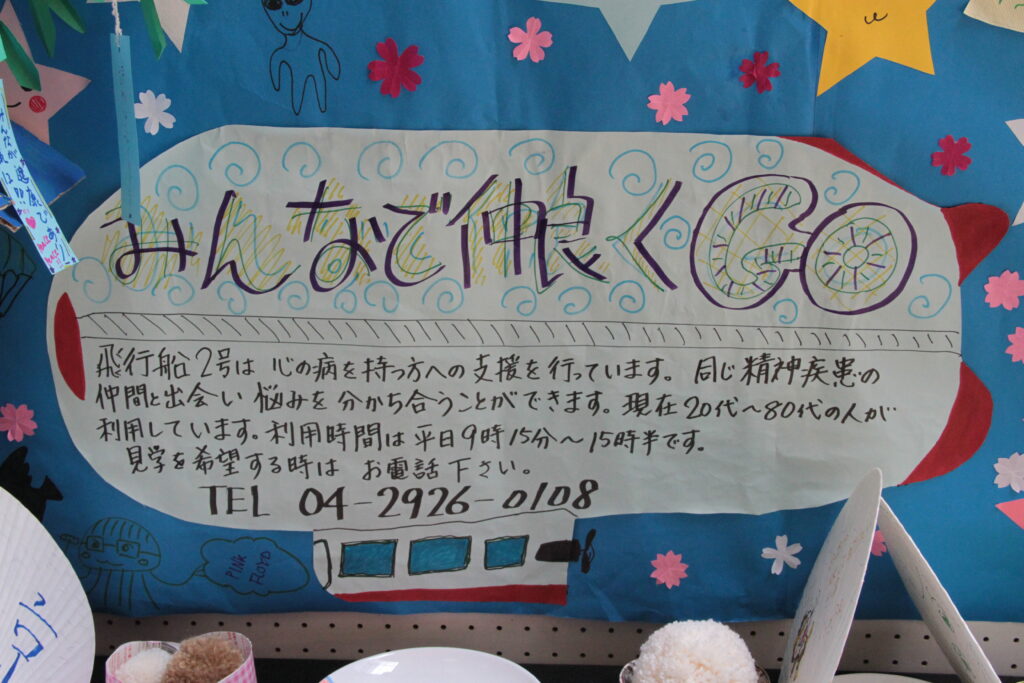 みんなで仲良くGO
飛行船2号は 心の病を持つ方への支援を行っています。同じ精神疾患の
仲間と出会い 悩みを分かち合うことができます。現在20代～80代の人が
利用しています。利用時間は平日9時15分～15時半です。
見学を希望する時は お電話下さい。
TEL 04-2926-0108
PINK
FLOYD
みんなが健康で